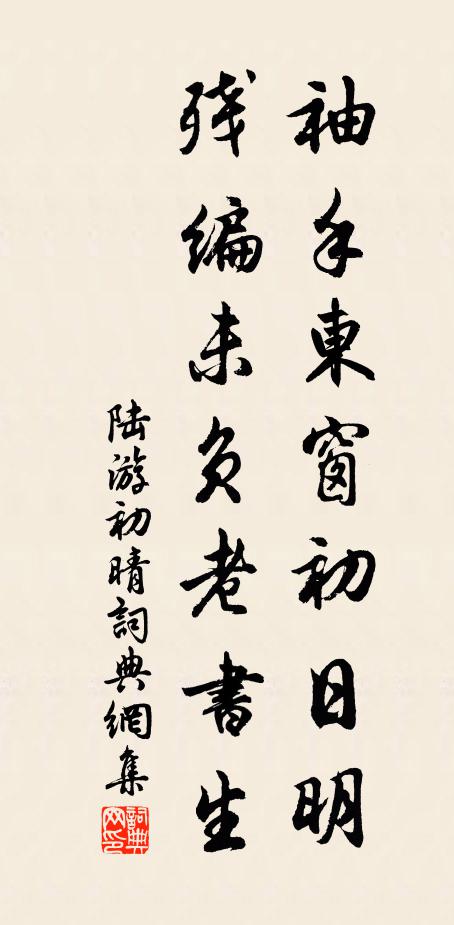 袖手東窗初日明
残编未負老書生
陆游初晴詞典網集
詞典網印